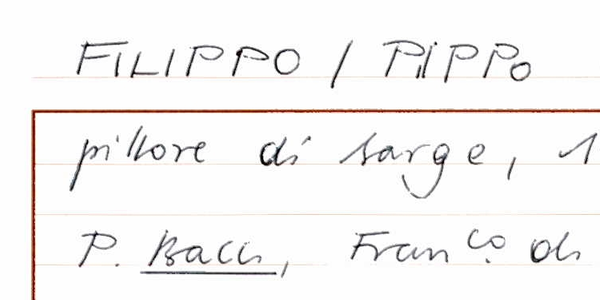 FILIPPO / PIPPO
pittore di sarge, 1
P. Bacci, Franco di